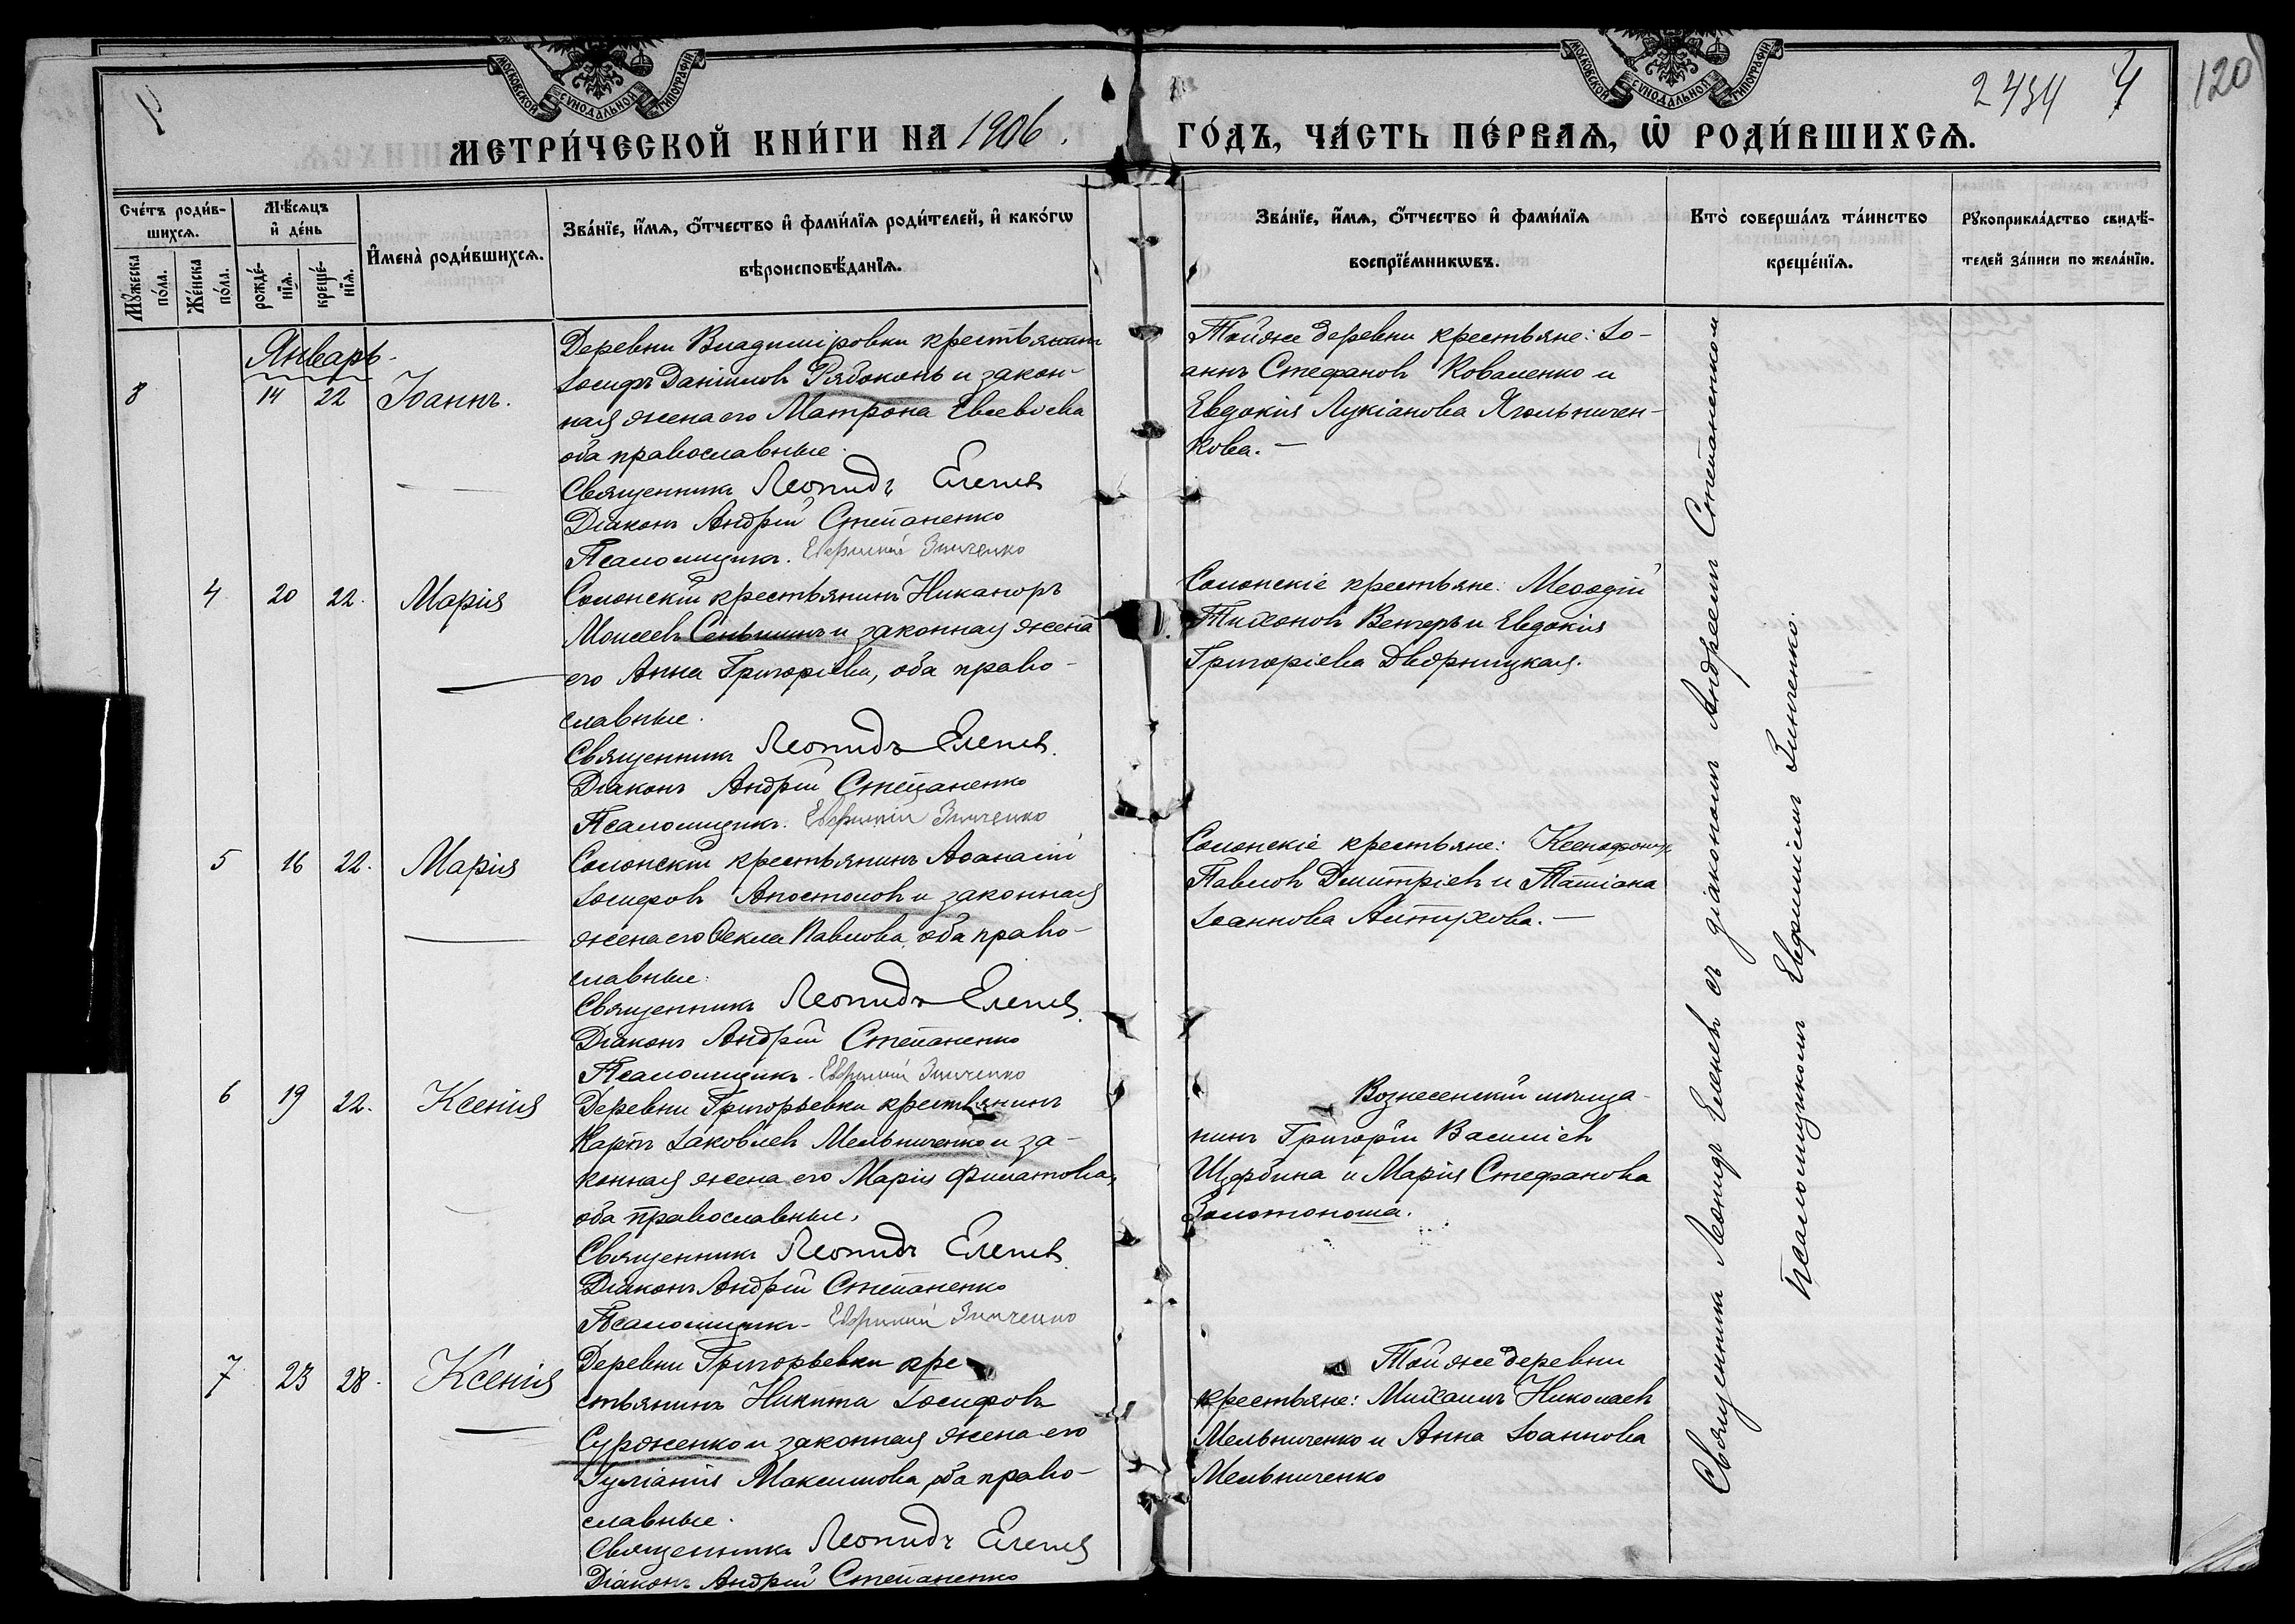 МОСКОВСКОЙ СѴНОДАЛЬНОЙ ТИПОГРАФІИ
МОСКОВСКОЙ СѴНОДАЛЬНОЙ ТИПОГРАФІИ
2434
120
МЕТРИ́ЧЕСКОЙ КНИ́ГИ НА 1906. ГО́ДЪ, ЧА́СТЬ ПЕ́РВАѦ, Ѡ РОДИ́ВШИХСѦ.
Сче́тъ роди́в-
шихсѧ.
Мꙋ́жеска по́ла.
Же́нска по́ла.
Мѣ́сѧцъ
и҆ де́нь
рожде́-
нїѧ.
креще́-
нїѧ.
И҆мена̀ роди́вшихсѧ.
Зва́нїе, и҆́мѧ, ѻ҆́тчество и҆ фами́лїѧ роди́телей, и҆ како́гѡ
вѣроисповѣ́данїѧ.
Зва́нїе, и҆́мѧ, ѻ҆́тчество и҆ фами́лїѧ
воспрїе́мникѡвъ.
Кто̀ соверша́лъ та́инство
креще́нїѧ.
Рꙋкоприкла́дство свидѣ́-
телей за́писи по жела́нїю.
Январь.
8 14 22 Іоаннъ.
Деревни Владиміровки крестьянинъ
Іосифъ Даніиловъ Рябоконь и закон-
ная жена его Матрона Евсевіева
оба православные.
Священникъ Леонидъ Еленевъ
Діаконъ Андрій Степаненко
Псаломщикъ. Евфимій Зинченко
Тойже деревни крестьяне: Іо-
аннъ Стефановъ Коваленко и
Евдокія Лукіанова Ягольничен-
кова.—
4 20 22. Марія
Солонскій крестьянинъ Никаноръ
Моисеевъ и законная жена
его Анна Григоріева, оба право-
славные.
Священникъ Леонидъ Еленевъ.
Діаконъ Андрій Степаненко
Псаломщикъ. Евфимій Зинченко
Солонскіе крестьяне: Меѳодій
Тихоновъ Венгеръ и Евдокія
Григоріева Дворницкая.
5 16 22. Марія
Солонскій крестьянинъ Аѳанасій
Іосифовъ Апостоловъ и законная
жена его Ѳекла Павлова, оба право-
славные.
Священникъ Леонидъ Еленевъ.
Діаконъ Андрій Степаненко
Псаломщикъ. Евфимій Зинченко
Солонскіе крестьяне: Ксенофонтъ
Павловъ Дмитріевъ и Татіана
Іоаннова.—
6 19 22. Ксенія
Деревни Григорьевки крестьянинъ
Карпъ Іаковлевъ Мельниченко и за-
конная жена его Марія Филатова,
оба православные.
Священникъ Леонидъ Еленевъ.
Діаконъ Андрій Степаненко
Псаломщикъ- Евфимій Зинченко
Вознесенскій мѣща-
нинъ Григорій Василіевъ
Щербина и Марія Стефанова
Золотоноша.
7 23 28. Ксенія
Деревни Григорьевки кре-
стьянинъ Никита Іосифовъ
Сурженко и законная жена его
Іуліанія Максимова, оба право-
славные.
Священникъ Леонидъ Еленевъ
Діаконъ Андрій Степаненко
Той же деревни
крестьяне: Михаилъ Николаевъ
Мельниченко и Анна Іоаннова
Мельниченко
Священникъ Леонидъ Еленевъ съ діакономъ Андреемъ Степаненкомъ
Псаломщикомъ Евфиміемъ Зинченко.